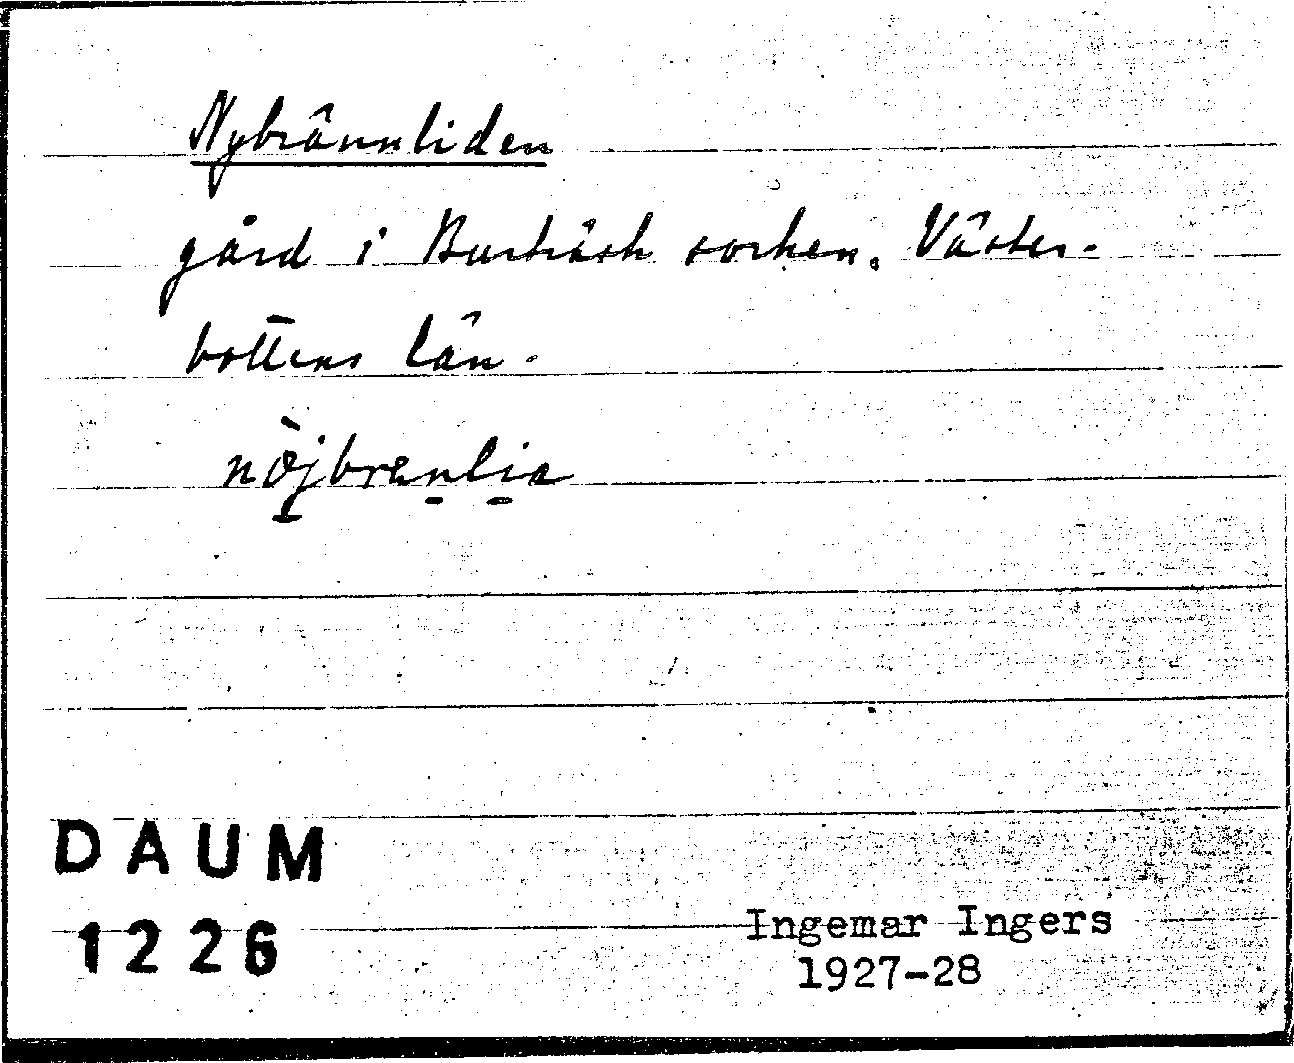 Nybrännliden
gård i Burträsk socken. Väster-
bottens län.
nö̀jbrenlia
DAUM
1226
Ingemar Ingers
1927-28